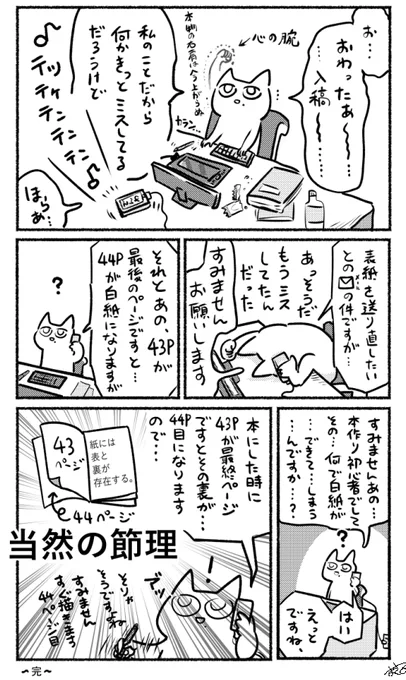 お…
おわったぁ〜
…入稿〜…
心の腕
本物の右肩は
上がらぬ
カラン…
私のことだから
何かきっと
ミスしてる
だろうけど
テッテケテンテンテンテン
ほらぁ…
表紙を送り直したい
との✉の件ですが…
あっそうだ
もうミス
してたん
だった
すみません
お願いします
それとあの、43Pが
最後のページですと…
44Pが白紙になりますが
?
すみませんあの…
本作り初心者でして
その…何で白紙が
…できて…しまう
…んですか…?
?
はい
えっと
ですね、
本にした時に
43Pが最終ページ
ですとその裏が…
44P目になります
ので…
43
ページ
紙には
表と
裏が
存在する。
44ページ
当然の節理
!
デッ
そりゃ
そうですよね
すみません
すぐ描きます
44ページ目
〜完〜